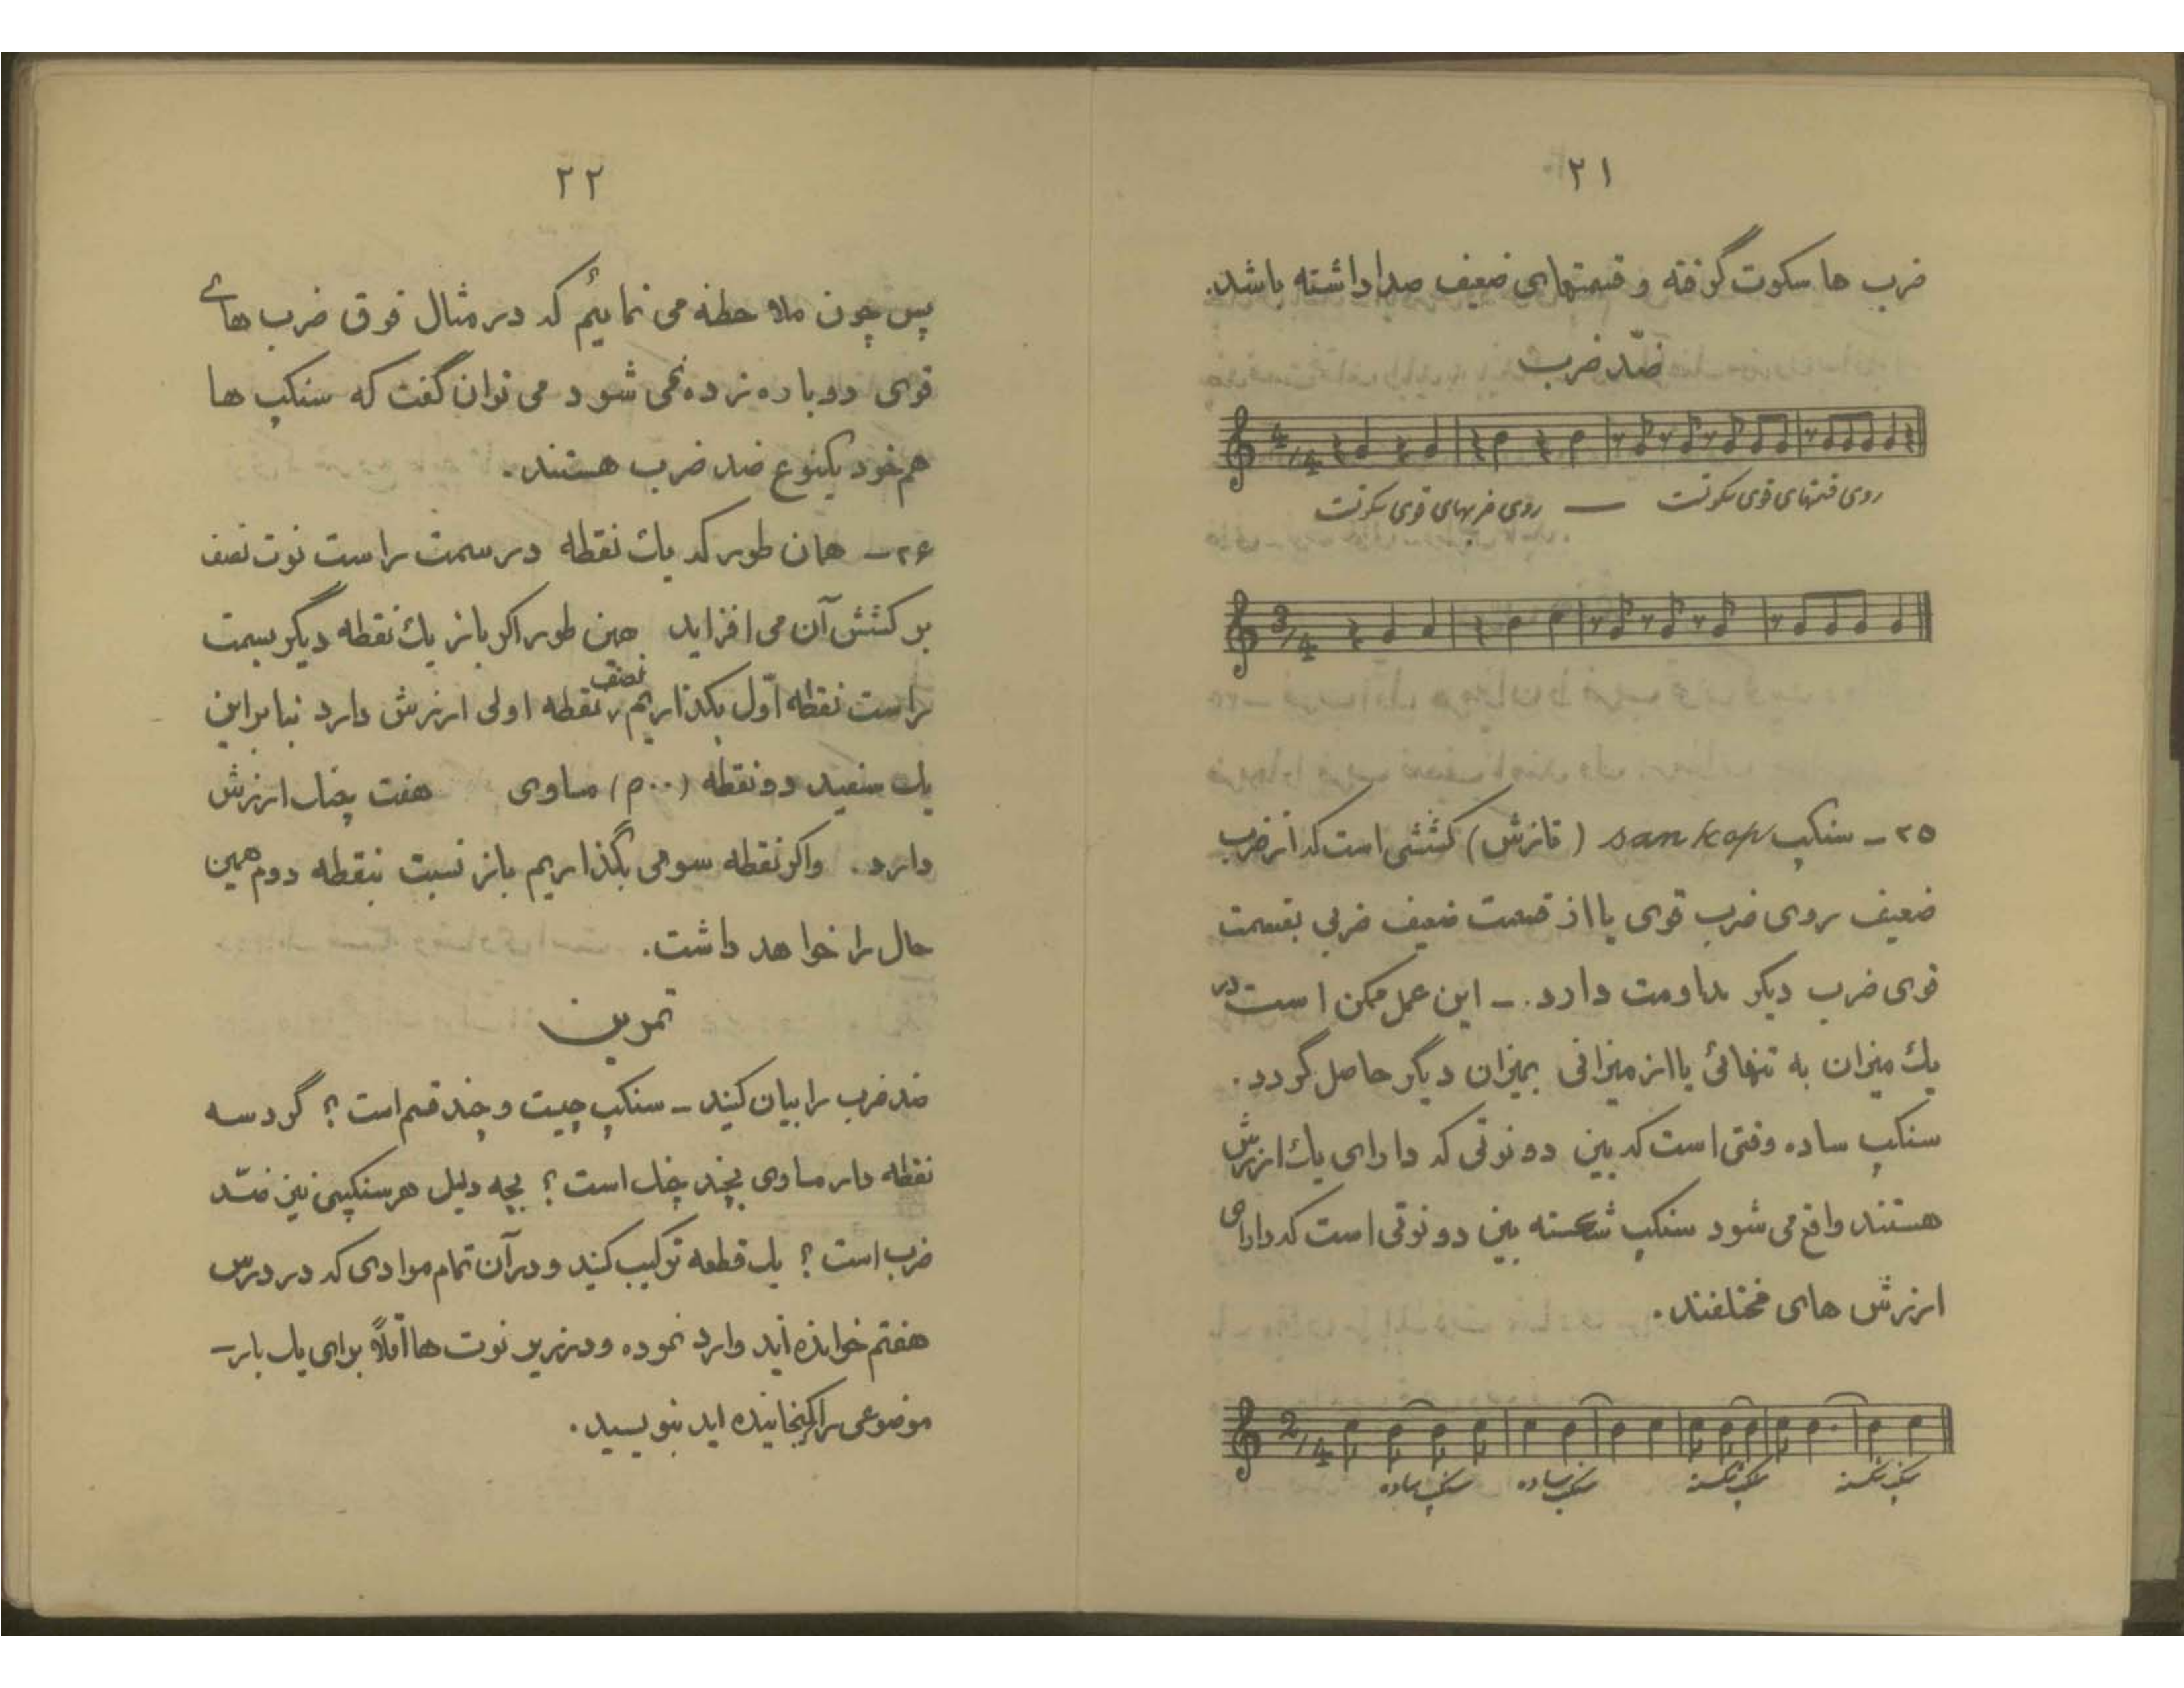 ۲۱
ضرب ها سکوت گرفته و قسمتهای ضعیف صدا داشته باشد.
ضدّ ضرب
4/4
روی ضربهای قوی سکوت — روی قسمتهای قوی سکوت
3/4
۲۵ - سنکپ san kop (قازش) کششی است که از ضرب
ضعیف روی ضرب قوی یا از قسمت ضعیف ضربی بقسمت
قوی ضرب دیگر مداومت دارد. - این عمل ممکن است در
یک میزان به تنهائی یا از میزانی بمیزان دیگر حاصل گردد.
سنکپ ساده وقتی است که بین دو نوتی که دارای یک ارزش
هستند واقع می شود سنکپ شکسته بین دو نوتی است که دارای
ارزش های مختلفند.
2/4
سنکپ ساده سنکپ ساده سنکپ شکسته سنکپ شکسته
۲۲
پس چون ملاحظه می نمائیم که در مثال فوق ضرب های
قوی دوباره زده نمی شود می توان گفت که سنکپ ها
هم خود یکنوع ضد ضرب هستند.
۲۶- همان طور که یک نقطه در سمت راست نوت نصف
بر کشش آن می افزاید همین طور اگر باز یک نقطه دیگر بسمت
راست نقطه اوّل بگذاریم نصف نقطه اولی ارزش دارد بنابراین
یک سفید دو نقطه (..م) مساوی هفت چنگ ارزش
دارد. و اگر نقطه سومی بگذاریم باز نسبت بنقطه دوم همین
حال را خواهد داشت.
تمرین
ضد ضرب را بیان کنید - سنکپ چیست و چند قسم است؟ گرد سه
نقطه دار مساوی بچند چنگ است؟ بچه دلیل هر سنکپی نیز ضدّ
ضرب است؟ یک قطعه ترکیب کنید و در آن تمام موادی که در درس
هفتم خوانده اید وارد نموده و در زیر نوت ها اقلاً برای یک بار -
موضوعی را گنجانیده اید بنویسید.